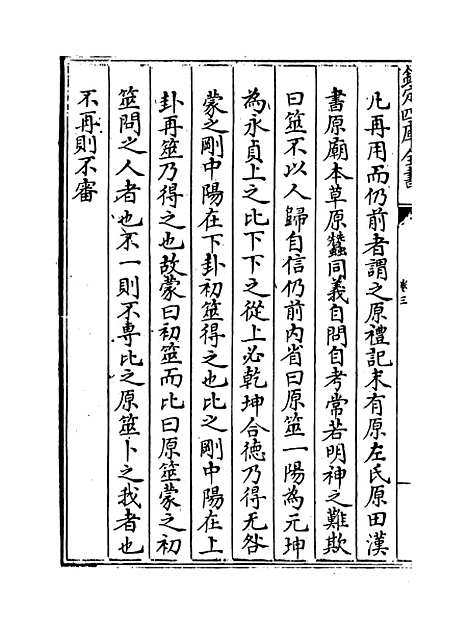 欽定四庫全書
卷三
凡再用而仍前者謂之原禮記末有原左氏原田漢
書原廟本草原蠶同義自問自考常若明神之難欺
曰筮不以人歸自信仍前内省曰原筮一陽為元坤
為永貞上之比下下之從上必乾坤合徳乃得无咎
蒙之剛中陽在下卦初筮得之也比之剛中陽在上
卦再筮乃得之也故蒙曰初筮而比曰原筮蒙之初
筮問之人者也不一則不專比之原筮卜之我者也
不再則不審